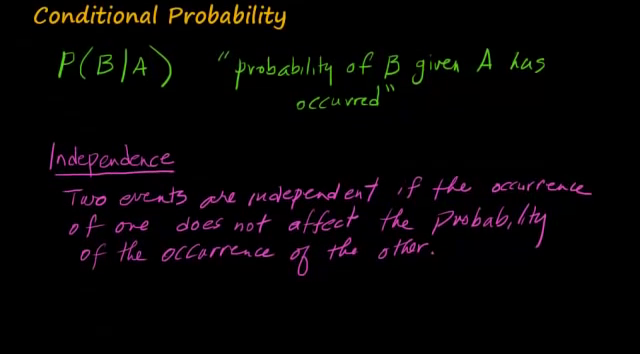 Conditional Probability
P(B|A) "probability of B given A has
occurred"
Independence
Two events are independent if the occurrence
of one does not affect the probability
of the occurrence of the other.